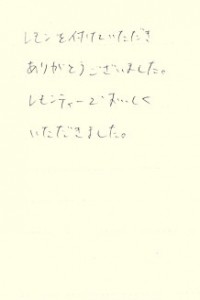 レモンを付けていただき
ありがとうございました。
レモンティーでおいしく
いただきました。